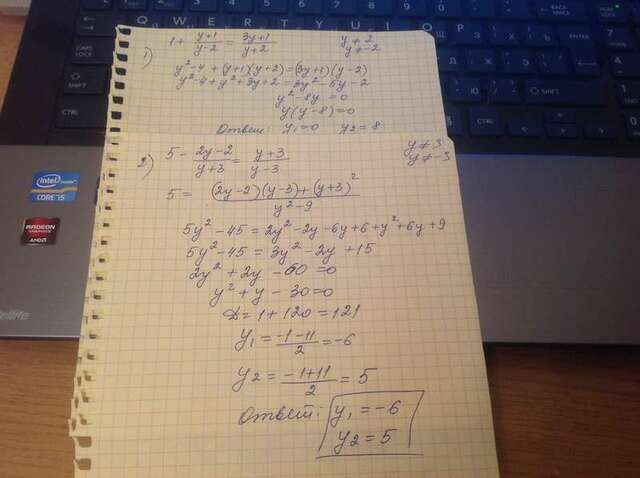 1) 1 + (y+1)/(y-2) = (3y+1)/(y+2)    y ≠ 2
y ≠ -2
y² - 4 + (y+1)(y+2) = (3y+1)(y-2)
y² - 4 + y² + 3y + 2 = 3y² - 5y - 2
y² - 8y = 0
y(y-8) = 0
Ответ: y₁ = 0  y₂ = 8
2) 5 - (2y-2)/(y+3) = (y+3)/(y-3)    y ≠ 3
y ≠ -3
5 = ((2y-2)(y-3) + (y+3)²)/(y² - 9)
5y² - 45 = 2y² - 2y - 6y + 6 + y² + 6y + 9
5y² - 45 = 3y² - 2y + 15
2y² + 2y - 60 = 0
y² + y - 30 = 0
D = 1 + 120 = 121
y₁ = (-1-11)/2 = -6
y₂ = (-1+11)/2 = 5
Ответ: y₁ = -6
y₂ = 5
intel
CORE i5
RADEON
GRAPHICS
AMD
CAPS LOCK
SHIFT
CTRL
SHIFT